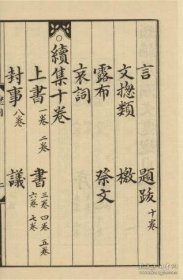 言 題跋十卷
文揔類 檄
露布 祭文
哀詞
續集十卷
上書一卷 二卷 書三卷 四卷 五卷 六卷 七卷
封事八卷 議